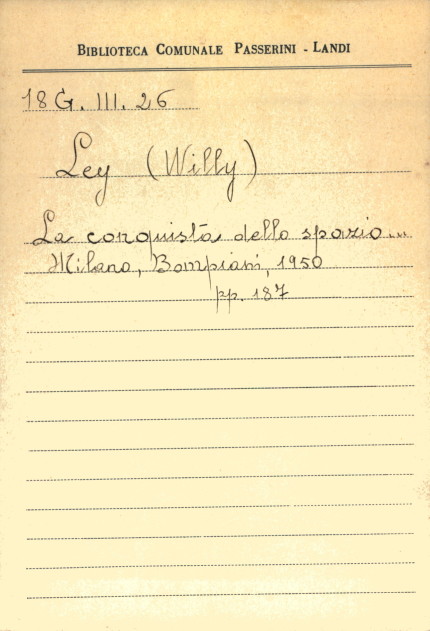 BIBLIOTECA COMUNALE PASSERINI - LANDI
18 G. III. 26
Ley (Willy)
La conquista dello spazio...
Milano, Bompiani, 1950
pp. 187